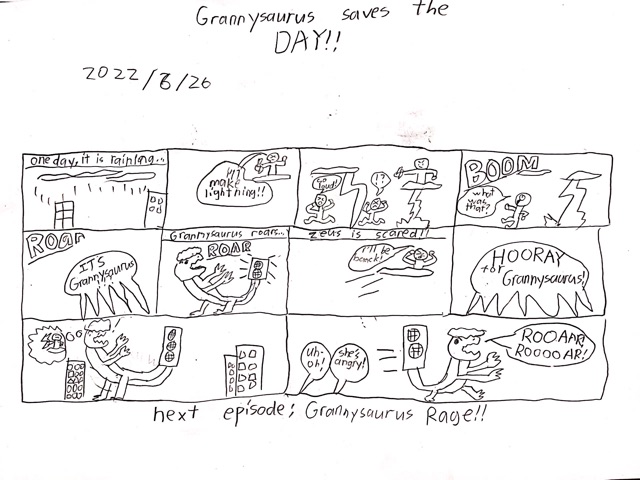 Grannysaurus saves the
DAY!!
2022/8/26
one day, it is raining...
I'll
make
lightning!!
So
loud!
!?
BOOM
what
was
that?
ROAR
ITS
Grannysaurus
Grannysaurus roars...
ROAR
zeus is scared!!
I'll be
back!
HOORAY
for
Grannysaurus!
Uh-
oh!
she's
angry!
ROOAAR!
ROOOOAR!
next episode; Grannysaurus Rage!!